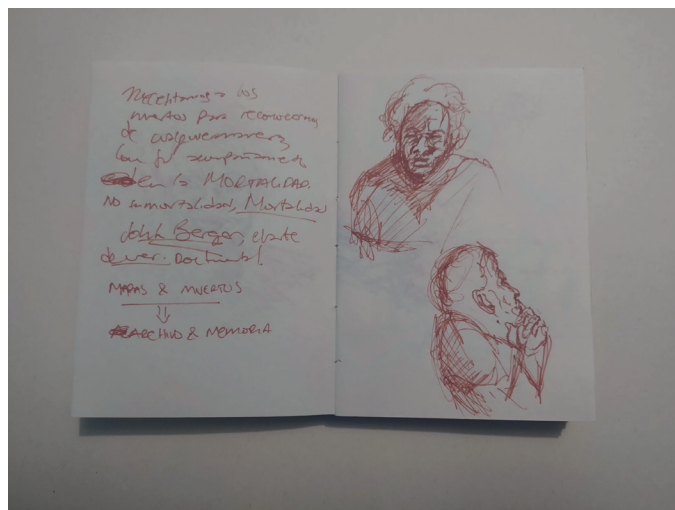 Necesitamos a los
muertos para reconocernos,
de cualquier manera,
con su acompañamiento
en la MORTALIDAD.
NO inmortalidad, Mortalidad
John Berger, el arte
de ver. Documental.
MAPAS & MUERTOS
ARCHIVO & MEMORIA